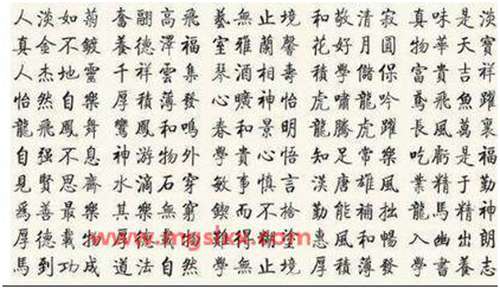 人淡如菊 奮翮高飛 藝無止境 和敬清寂 真味是淡
真金不鍍 養德澤福 室雅蘭馨 花好月圓 物華天寶
人杰地靈 千祥雲集 琴酒相壽 積學儲保 富貴吉祥
怡然自樂 厚積薄發 心曠神怡 虎嘯龍吟 鳶飛魚躍
龍飛鳳舞 鸞鳳和鳴 春和景明 龍騰虎躍 長風萬裏
自强不息 神游物外 學貴心悟 知足常樂 吃虧是福
見賢思齋 水滴石穿 敏事慎言 漢唐雄風 業精于勤
爲善最樂 其樂無窮 鍥而不捨 勤能補拙 龍馬精神
厚德載物 難得 惠風和暢 入幽出朗
馬到功成 道法自然 學無止境 厚積薄發 學書養志